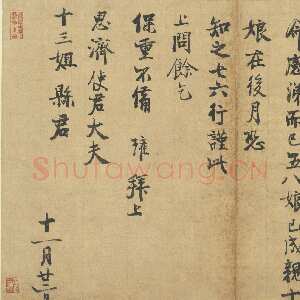 府慶澤而已五八娘已成親十
娘在後月恐
知之七六行謹此
上問餘乞
保重不備 琟拜上
恩濟使君大夫
十三姐縣君
十一月廿二日
Shufawang.CN